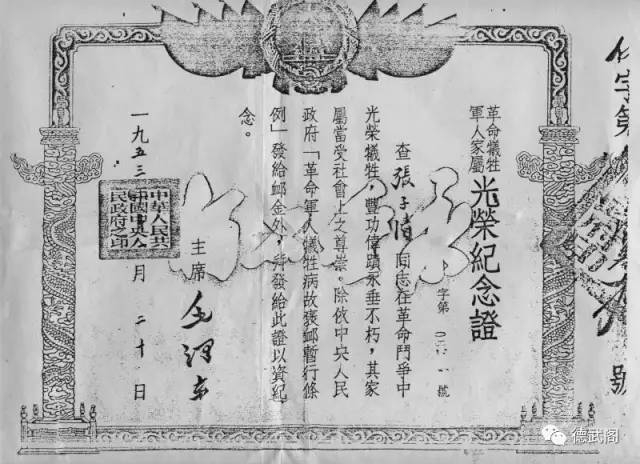 字第
號
革命犧牲
軍人家屬
光榮紀念證
字第 號
查張子清同志在革命鬥爭中
光榮犧牲,豐功偉蹟永垂不朽,其家
屬當受社會上之尊崇。除依中央人民
政府「革命軍人犧牲病故褒卹暫行條
例」發給卹金外,并發給此證以資紀
念。
主席 毛澤东
一九五三 月二十日
中華人民共
和國中央人
民政府之印
德武阁